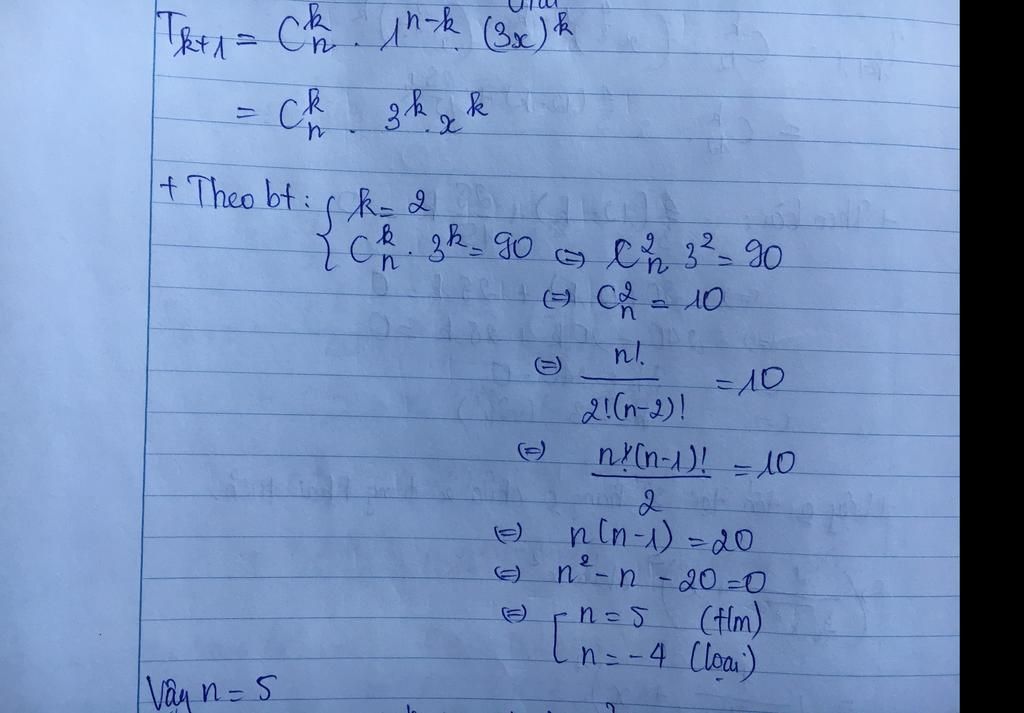 T_{k+1} = C_n^k . 1^{n-k} . (3x)^k
= C_n^k . 3^k . x^k
+ Theo bt: { k = 2
C_n^k . 3^k = 90 ⇔ C_n^2 3^2 = 90
⇔ C_n^2 = 10
⇔ n! / 2!(n-2)! = 10
⇔ n!(n-1)! / 2 = 10
⇔ n(n-1) = 20
⇔ n^2 - n - 20 = 0
⇔ [ n = 5 (t/m)
n = -4 (loại)
Vậy n = 5